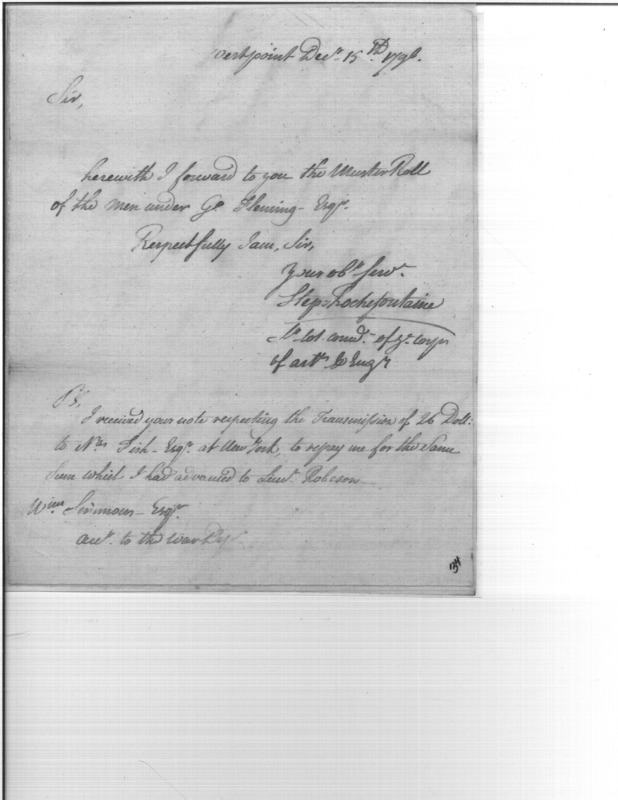 Westpoint Decr. 15th 1796.
Sir,
herewith I forward to you the Muster Roll
of the men under Go. Fleming - Esqr.
Respectfully I am, Sir,
Your obt. Serv.
Steps. Rochefontaine
Lt. Col. comd. of ye. corps
of artts. & Engrs
PS,
I received your note respecting the Transmission of 26 Doll:
to Nas. Fish - Esqr. at New York, to repay me for the Same
Sum whish I had advanced to Lieut. Robeson
Wm. Simmons - Esqr.
acct. to the War Dept.
134